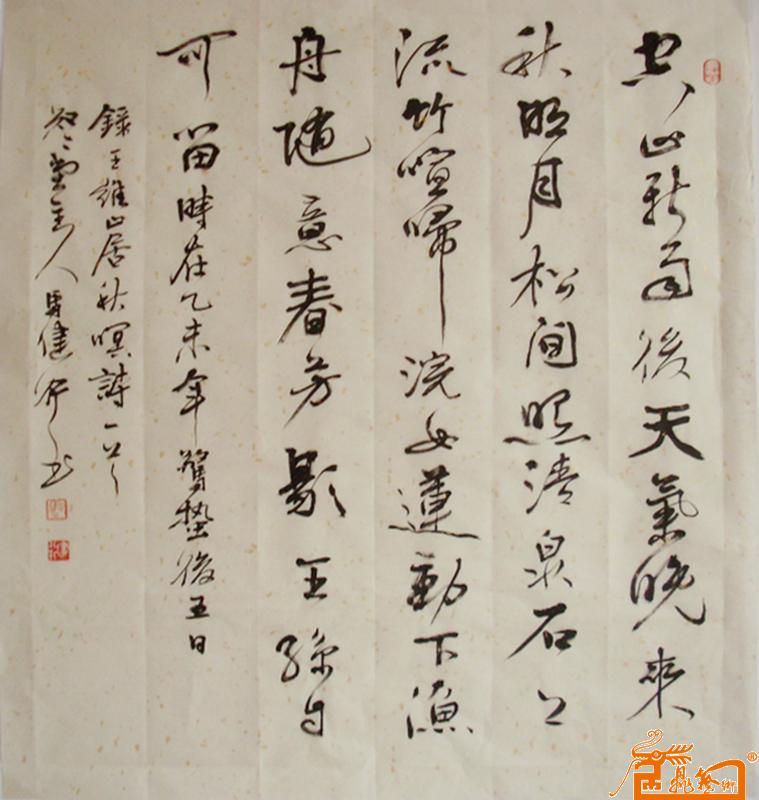 空山新雨後天氣晚來
秋明月松間照清泉石上
流竹喧歸浣女蓮動下漁
舟随意春芳歇王孫自
可留時在乙未年驚蟄後五日
錄王維山居秋暝詩一首
堂主人馬健書